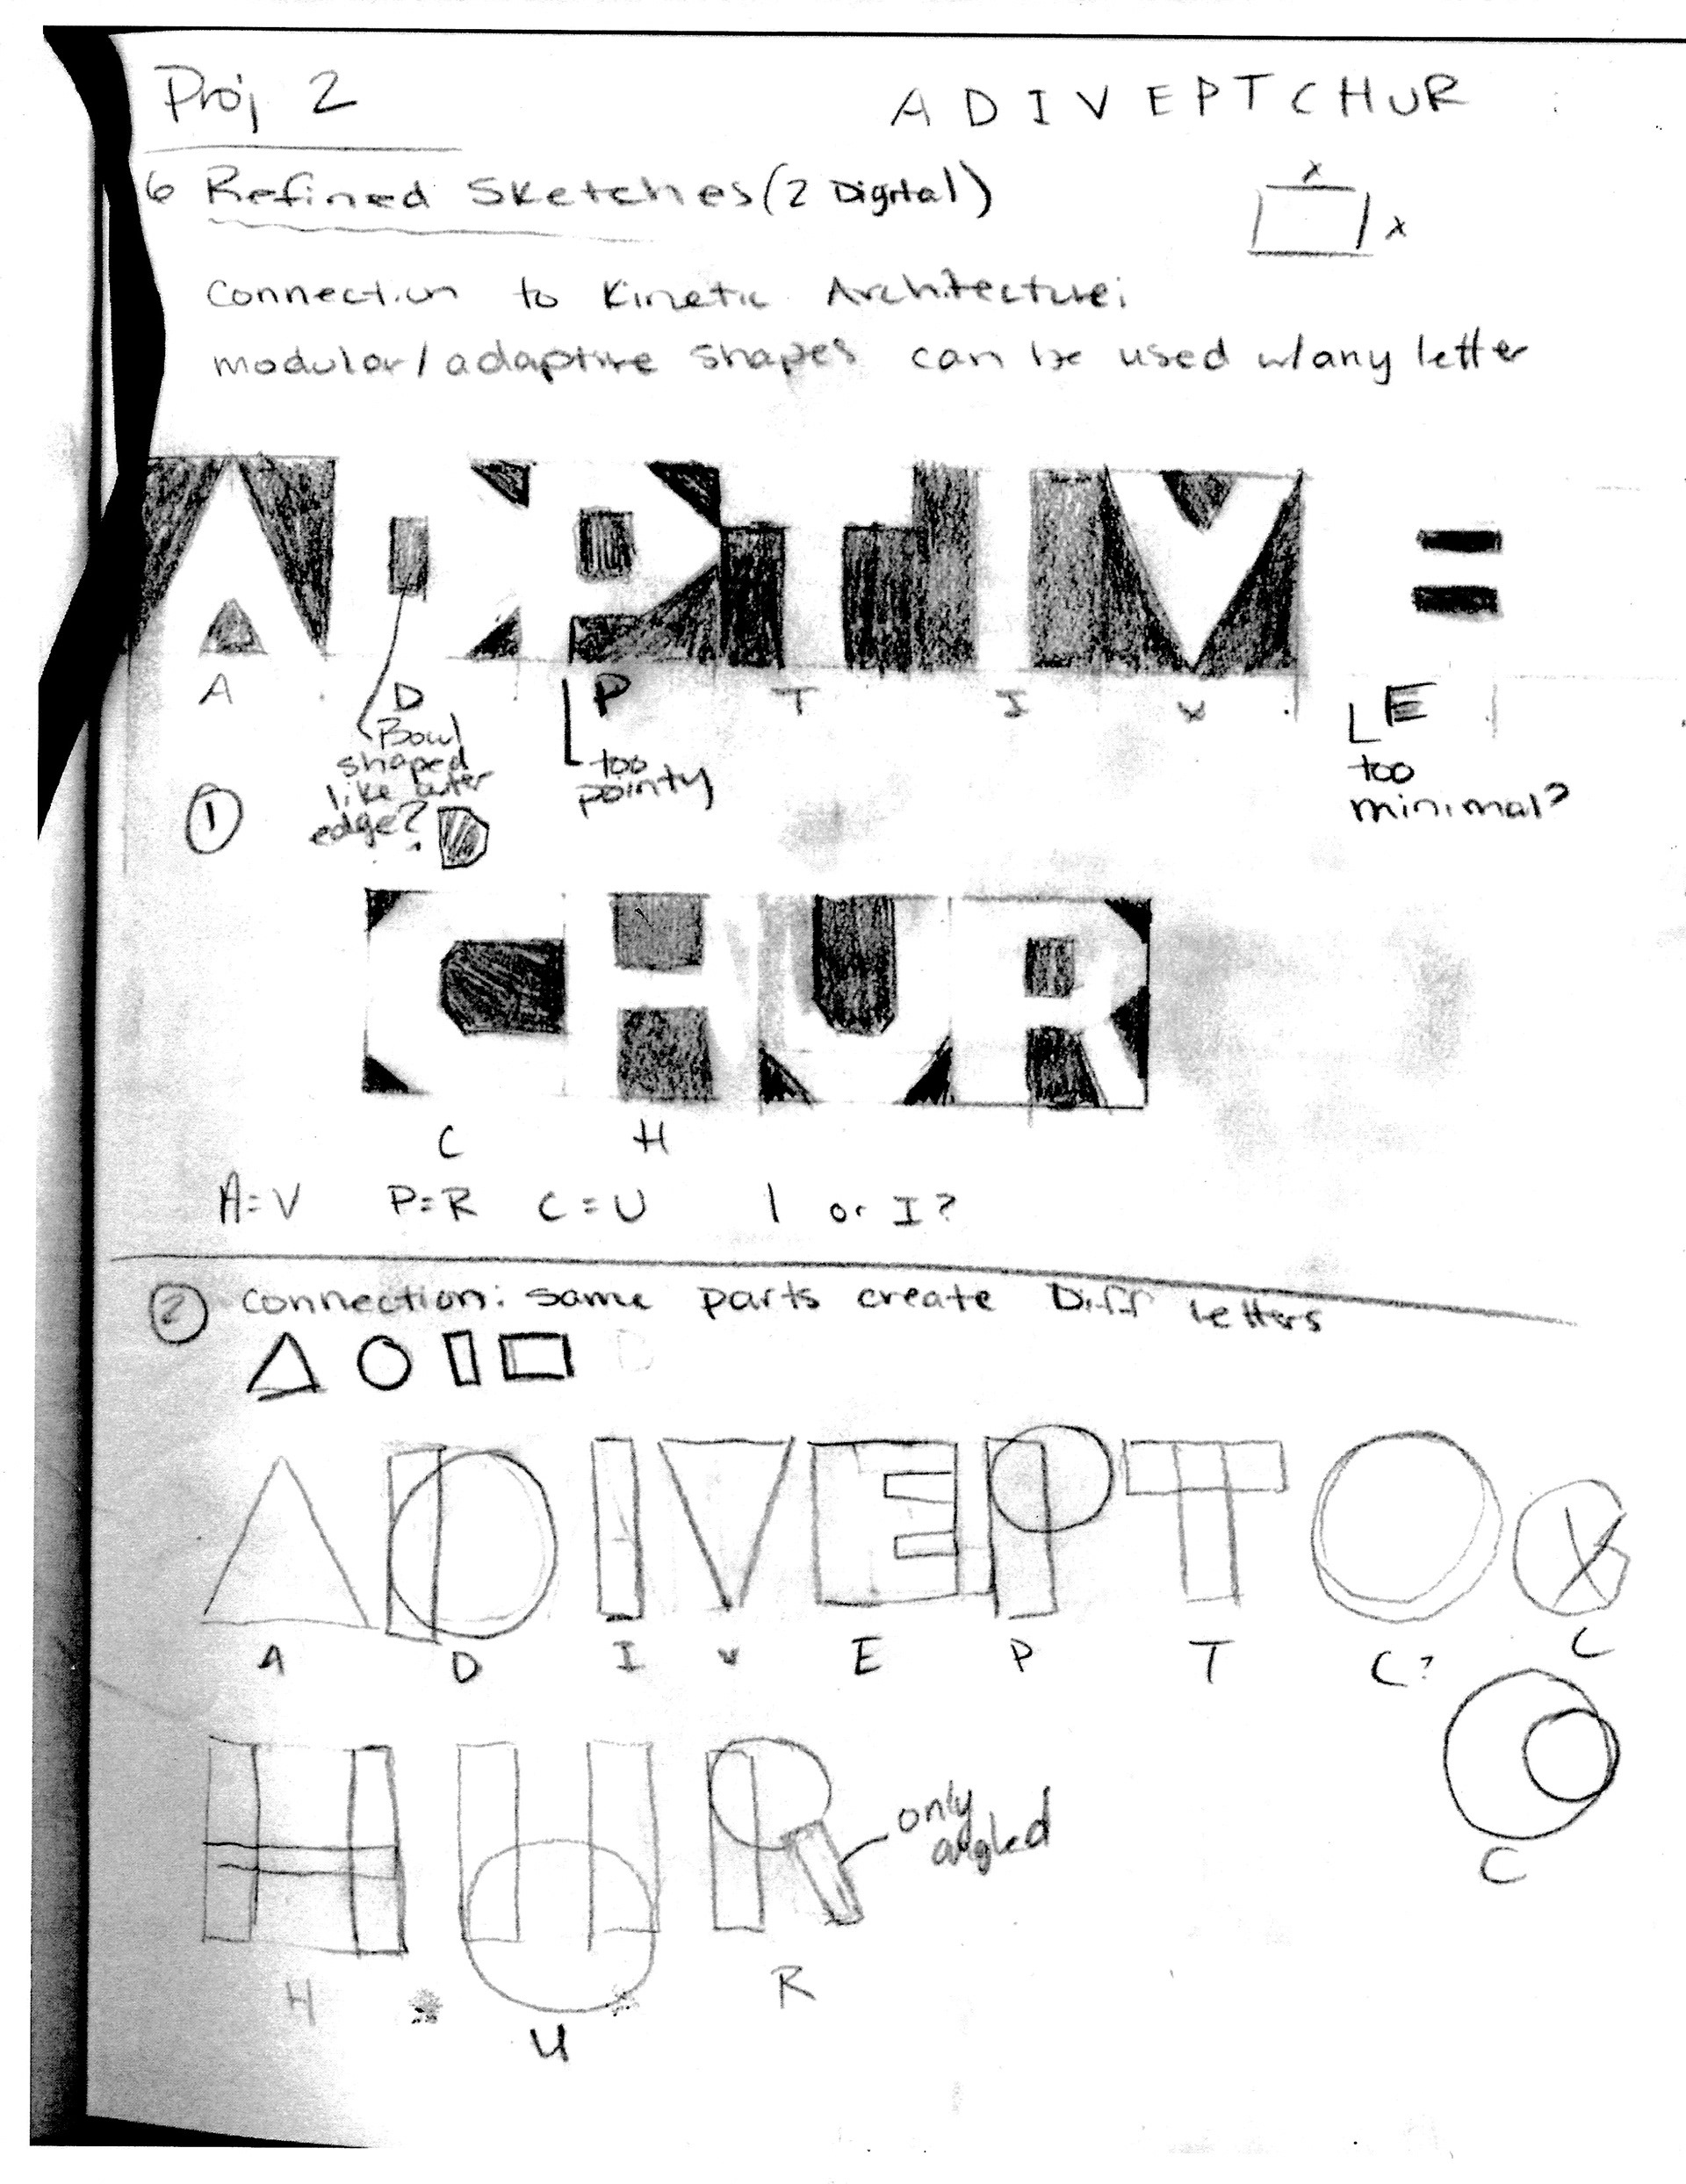 Proj 2
A D I V E P T C H U R
6 Refined Sketches (2 Digital)
x
x
Connection to Kinetic Architecture:
modular/adaptive shapes can be used w/any letter
A D P T I V E
Bowl
shaped
like outer
edge?
too
pointy
too
minimal?
1
C H U R
C H
A=V P=R C=U | or I?
2 connection: same parts create Diff letters
A D I V E P T C? C
C
H U R
only
angled